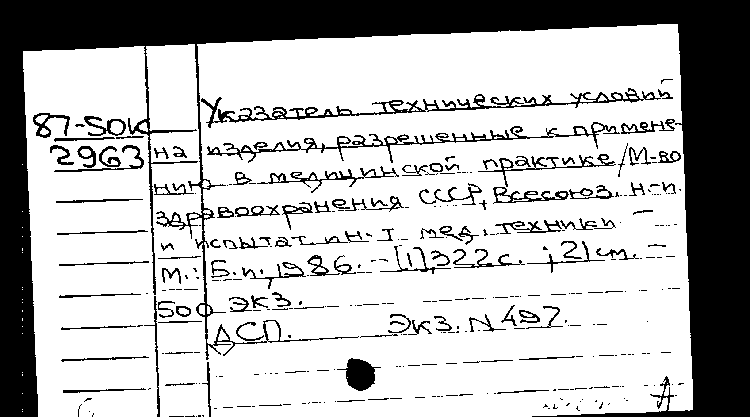 Указатель технических условий
87-50к
2963 на изделия, разрешенные к примене-
нию в медицинской практике/М-во
здравоохранения СССР, Всесоюз. н-и.
и испытат. ин-т мед. техники. –
М.: Б.и., 1986. – [1], 322 с. ; 21 см. –
500 экз.
ДСП. Экз. N 497.
А